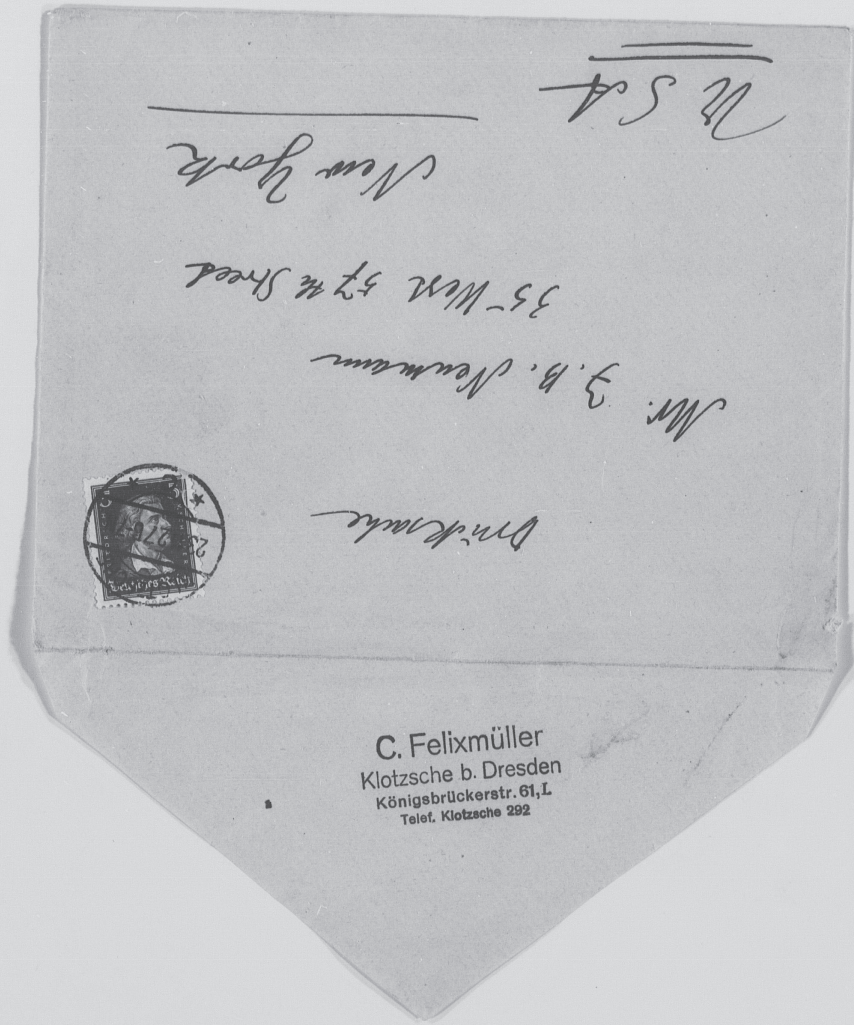 Drucksache
Mr. J. B. Neumann
35 West 57th Street
New York
U S A
5 5
Deutsches Reich
C. Felixmüller
Klotzsche b. Dresden
Königsbrückerstr. 61, I.
Telef. Klotzsche 292